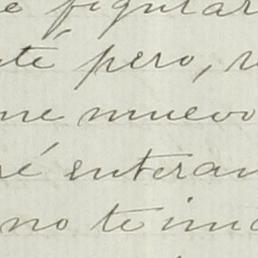 e figurar
té pero,
me nuevo
ré enteran
no te ima